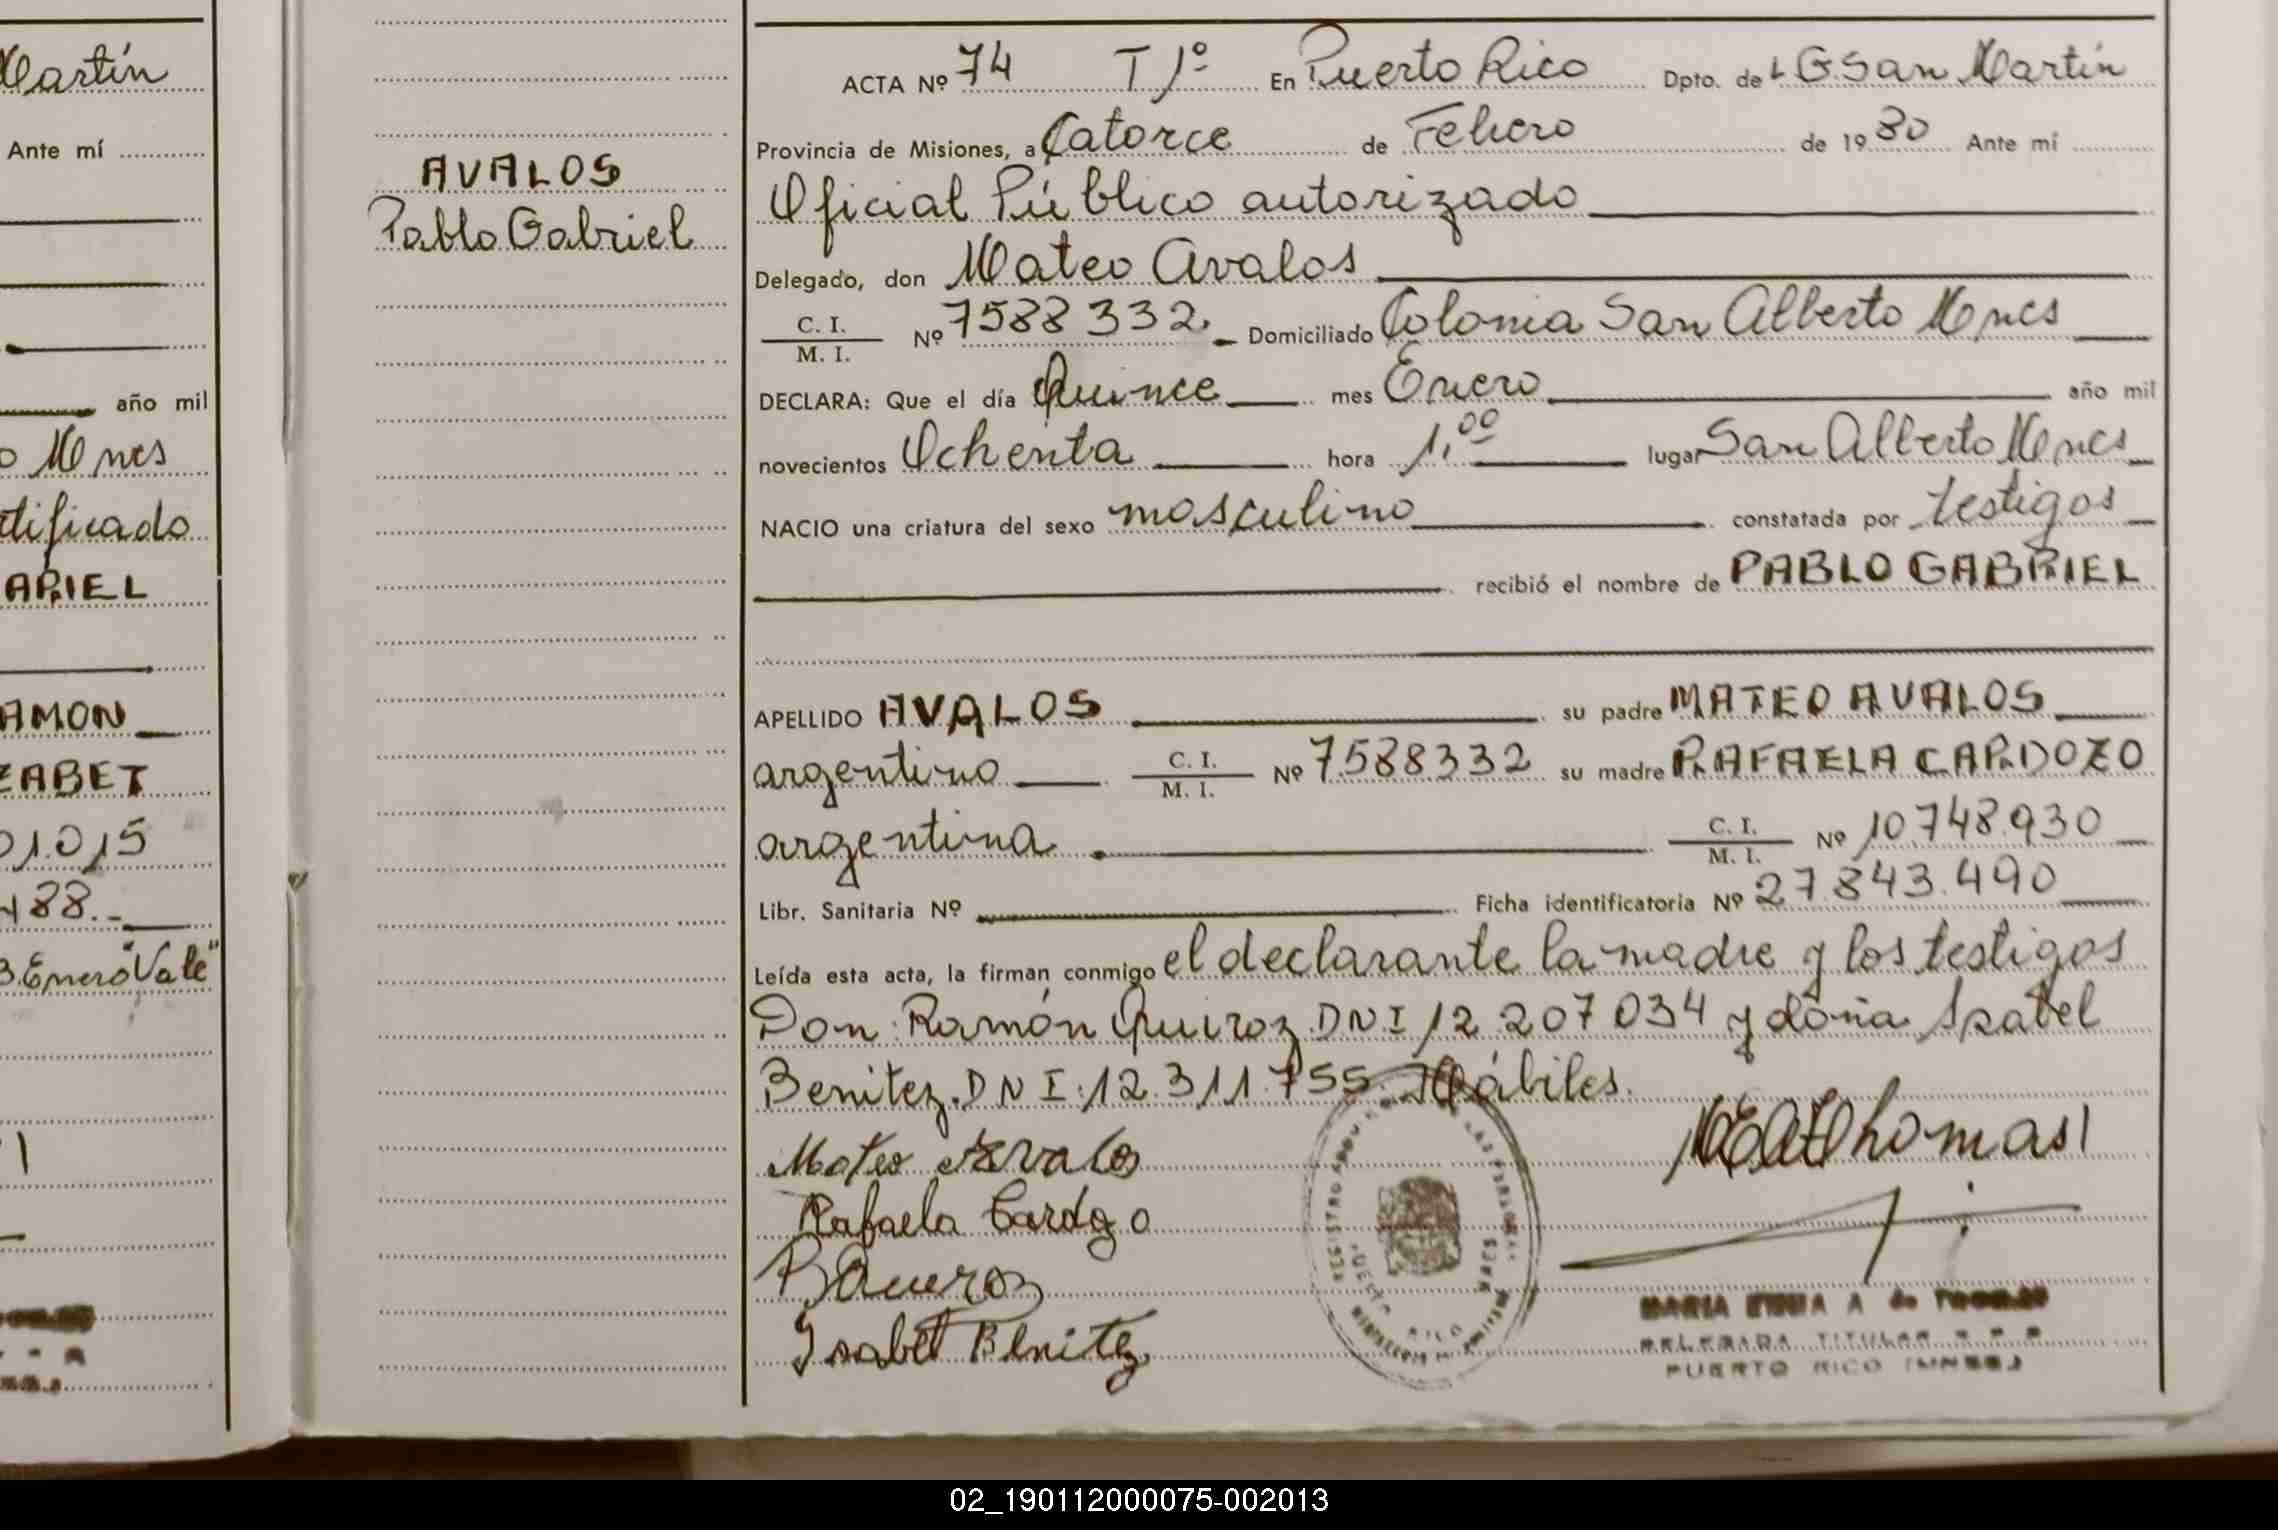 Martín
Ante mí
año mil
o Mnes
tificado
ARIEL
AMON
ZABET
01.015
488.-
3.Enero"Vale"
AVALOS
Pablo Gabriel
ACTA Nº 74 T 1º En Puerto Rico Dpto. de L G.San Martín
Provincia de Misiones, a Catorce de Febrero de 1980 Ante mí
Oficial Público autorizado
Delegado, don Mateo Avalos
C. I. / M. I. Nº 7588332. Domiciliado Colonia San Alberto Mnes
DECLARA: Que el día Quince mes Enero año mil
novecientos Ochenta hora 1,00 lugar San Alberto Mnes
NACIO una criatura del sexo masculino constatada por testigos
recibió el nombre de PABLO GABRIEL
APELLIDO AVALOS su padre MATEO AVALOS
argentino C. I. / M. I. Nº 7.588332 su madre RAFAELA CARDOZO
argentina C. I. / M. I. Nº 10748.930
Libr. Sanitaria Nº Ficha identificatoria Nº 27.843.490
Leída esta acta, la firman conmigo el declarante la madre y los testigos
Don Ramón Quiroz DNI 12 207 034 y doña Isabel
Benitez. DNI. 12.311.755. Hábiles.
Mateo Avalos
Rafaela Cardozo
Isabel Benitez
REGISTRO DE LAS PERSONAS
PUERTO RICO
MARIA A de
DELEGADA TITULAR
PUERTO RICO (MNES.)
02_190112000075-002013